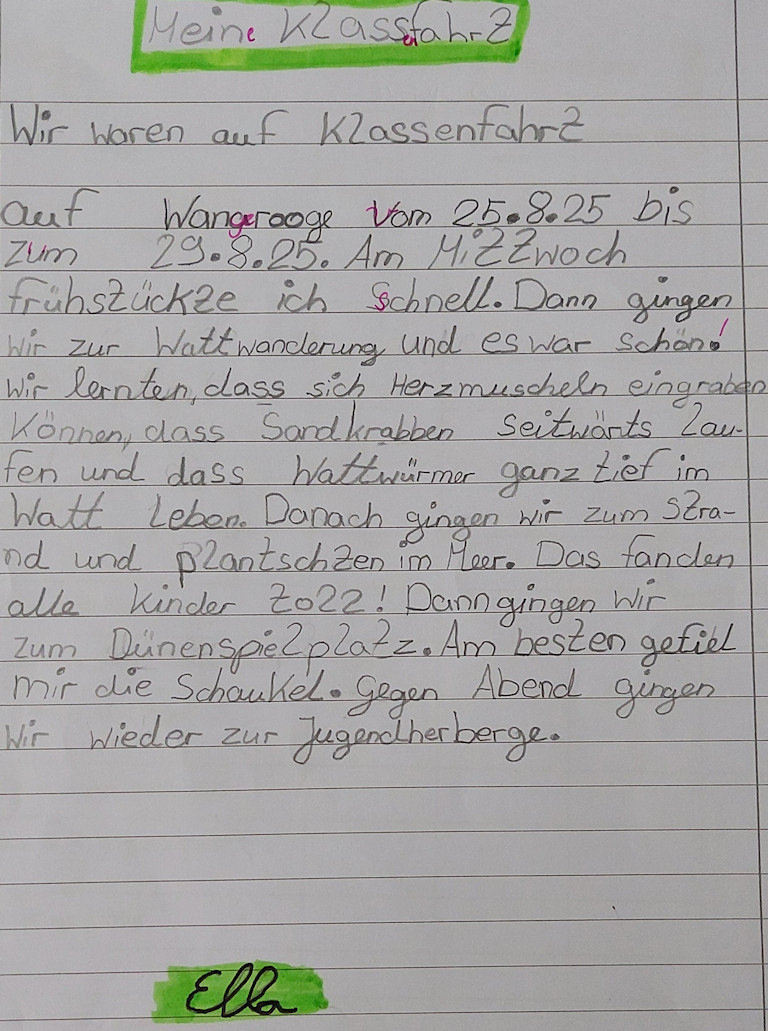 Meine Klassenfahrt
Wir waren auf Klassenfahrt
auf Wangerooge vom 25.8.25 bis
zum 29.8.25. Am Mittwoch
frühstückte ich schnell. Dann gingen
wir zur Wattwanderung und es war schön!
Wir lernten, dass sich Herzmuscheln eingraben
können, dass Sandkrabben seitwärts lau-
fen und dass Wattwürmer ganz tief im
Watt leben. Danach gingen wir zum Stra-
nd und plantschten im Meer. Das fanden
alle Kinder toll! Dann gingen wir
zum Dünenspielplatz. Am besten gefiel
mir die Schaukel. Gegen Abend gingen
wir wieder zur Jugendherberge.
Ella